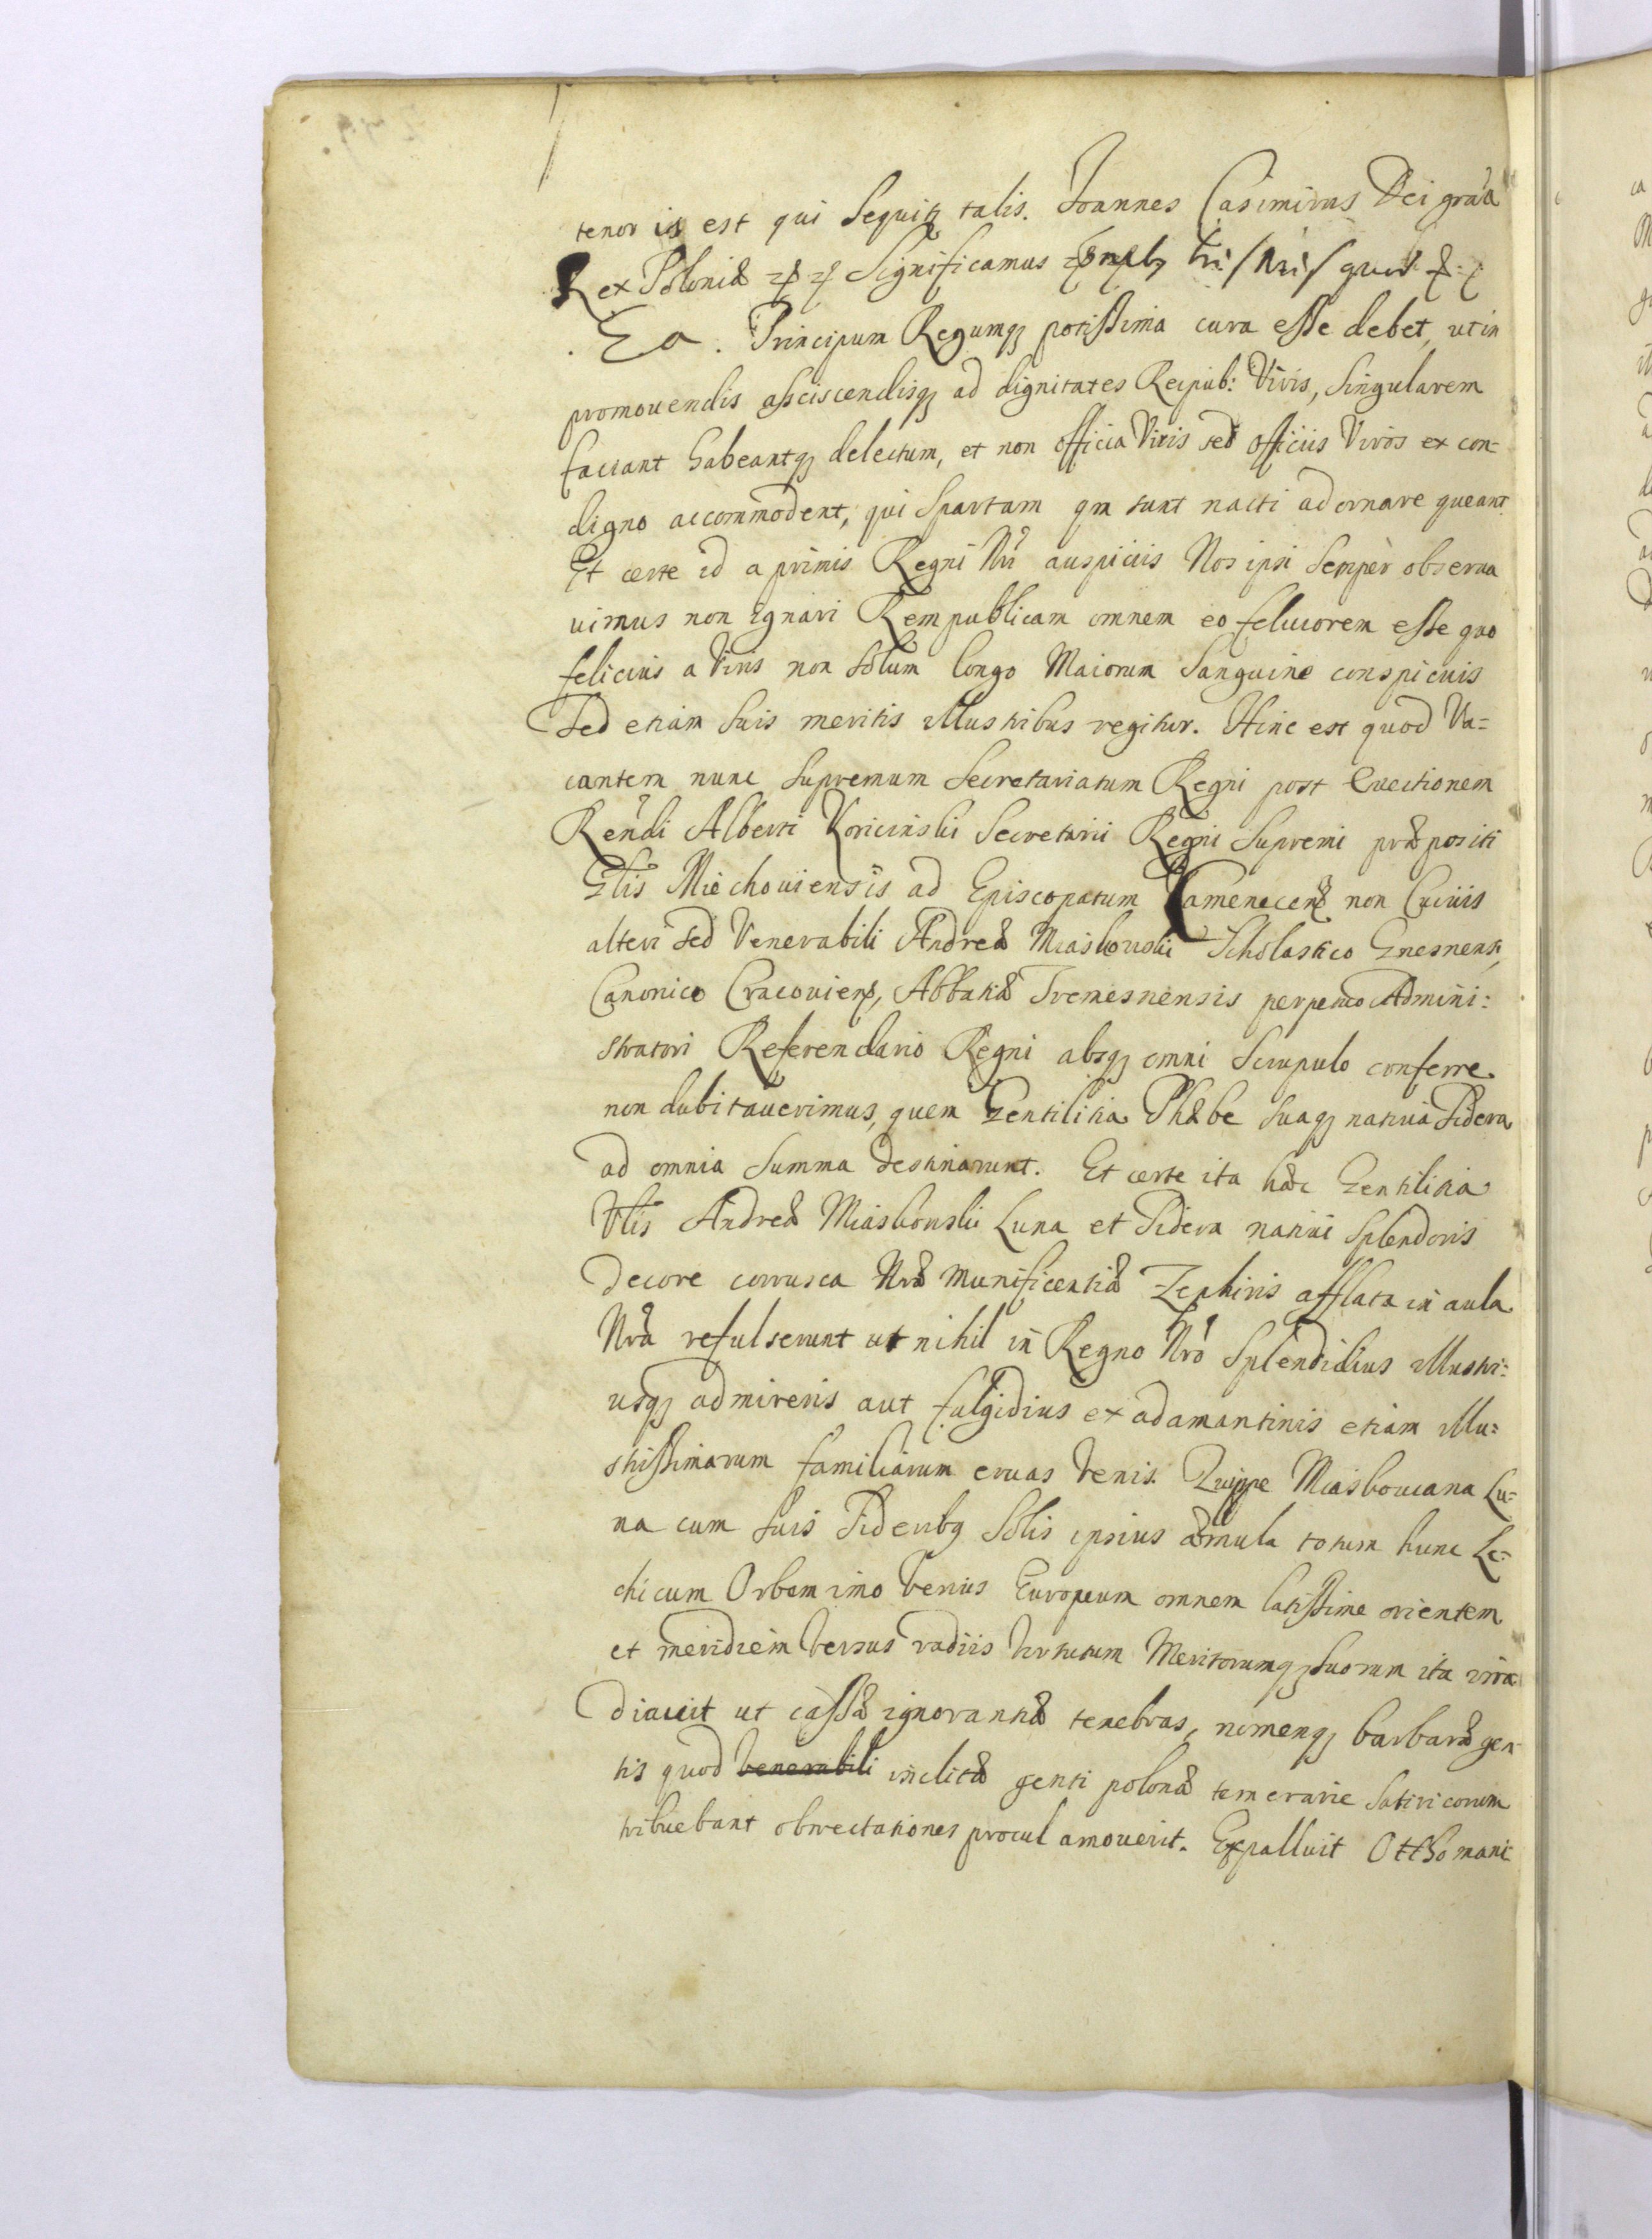 tenor is est qui sequitꝫ talis. Joannes Casimirus Dei grãa
Rex Poloniæ Significamus quod
Ea. Principum Regumqꝫ potissima cura esse debet, ut in
promouendis assciscendisqꝫ ad dignitates Reipub: Viris, singularem
faciant habeantqꝫ delectum, et non officia Viris sed officiis Viros ex con=
digno accommodent, qui Spartam qm sunt nacti adornare queant.
Et certe id a primis Regni Nri auspiciis Nos ipsi semper obserua
uimus non ignari Rempublicam omnem eo feliciorem esse quo
felicius a Viris non solum longo Maiorum sanguine conspicuis
sed etiam suis meritis illustribus regitur. Hinc est quod Va=
cantem nunc supremum Secretariatum Regni post Euectionem
Rendi Alberti Koricinskii Secretarii Regni Supremi præpositi
Glis Miechouiensis ad Episcopatum Camenecen non Cuiuis
alteri sed Venerabili Andreæ Miaskowskii Scholastico Gnesnensi,
Canonico Cracouien, Abbatiæ Tremesnensis perpetuo Admini:
stratori Referendario Regni absqꝫ omni Scrupulo conferre
non dubitauerimus, quem Gentilitia Phæbe suaqꝫ natiua Sidera
ad omnia summa destinarunt. Et certe ita hæc Gentilitia
Vlis Andreæ Miaskouskii Luna et Sidera natiui Splendoris
decore corrusca Nræ munificentiæ Zephiris afflata in aula
Nra refulserunt ut nihil in Regno Nro Splendidius illustri:
usqꝫ admireris aut fulgidius ex adamantinis etiam illu=
strissimarum familiarum eruas Venis. Quippe Miaskouiana Lu=
na cum suis Sideribꝫ Solis ipsius æmula totum hunc Le=
chicum Orbem imo verius Europeum omnem latissime orientem
et meridiem versus radiis virtutum Meritorumqꝫ suorum ita irra
diauit ut cassæ ignorantiæ tenebras, nomenqꝫ barbaræ gen
tis quod venerabili inclitæ genti polonæ temerarie Satiricorum
tribuebant obtrectationes procul amouerit. Expalluit Otthomani